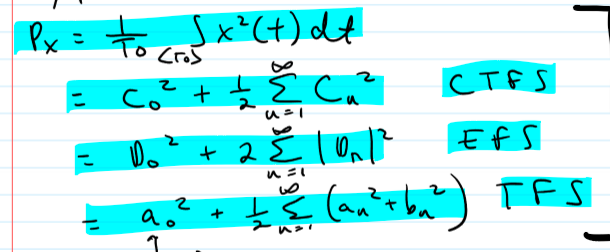 Px = 1/T₀ ∫<T₀> x²(t) dt
= C₀² + 1/2 ∞Σn=1 Cn² CTFS
= D₀² + 2 ∞Σn=1 |Dn|² EFS
= a₀² + 1/2 ∞Σn=1 (an² + bn²) TFS